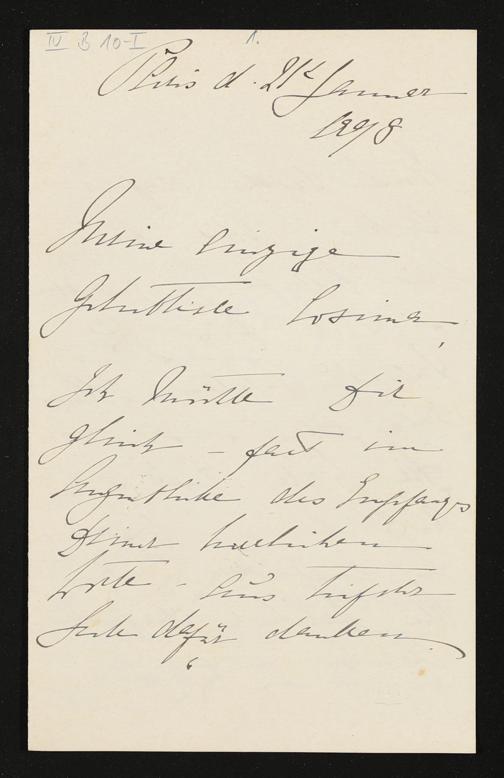 IV B 10-I 1.
Paris d. 21t Januar
1898
Meine einzige
Geliebteste Cosima,
Ich möchte Dir
gleich - fast im
Augenblicke des Empfangs
Deiner herrlichen
Worte - aus tiefster
Seele dafür danken.